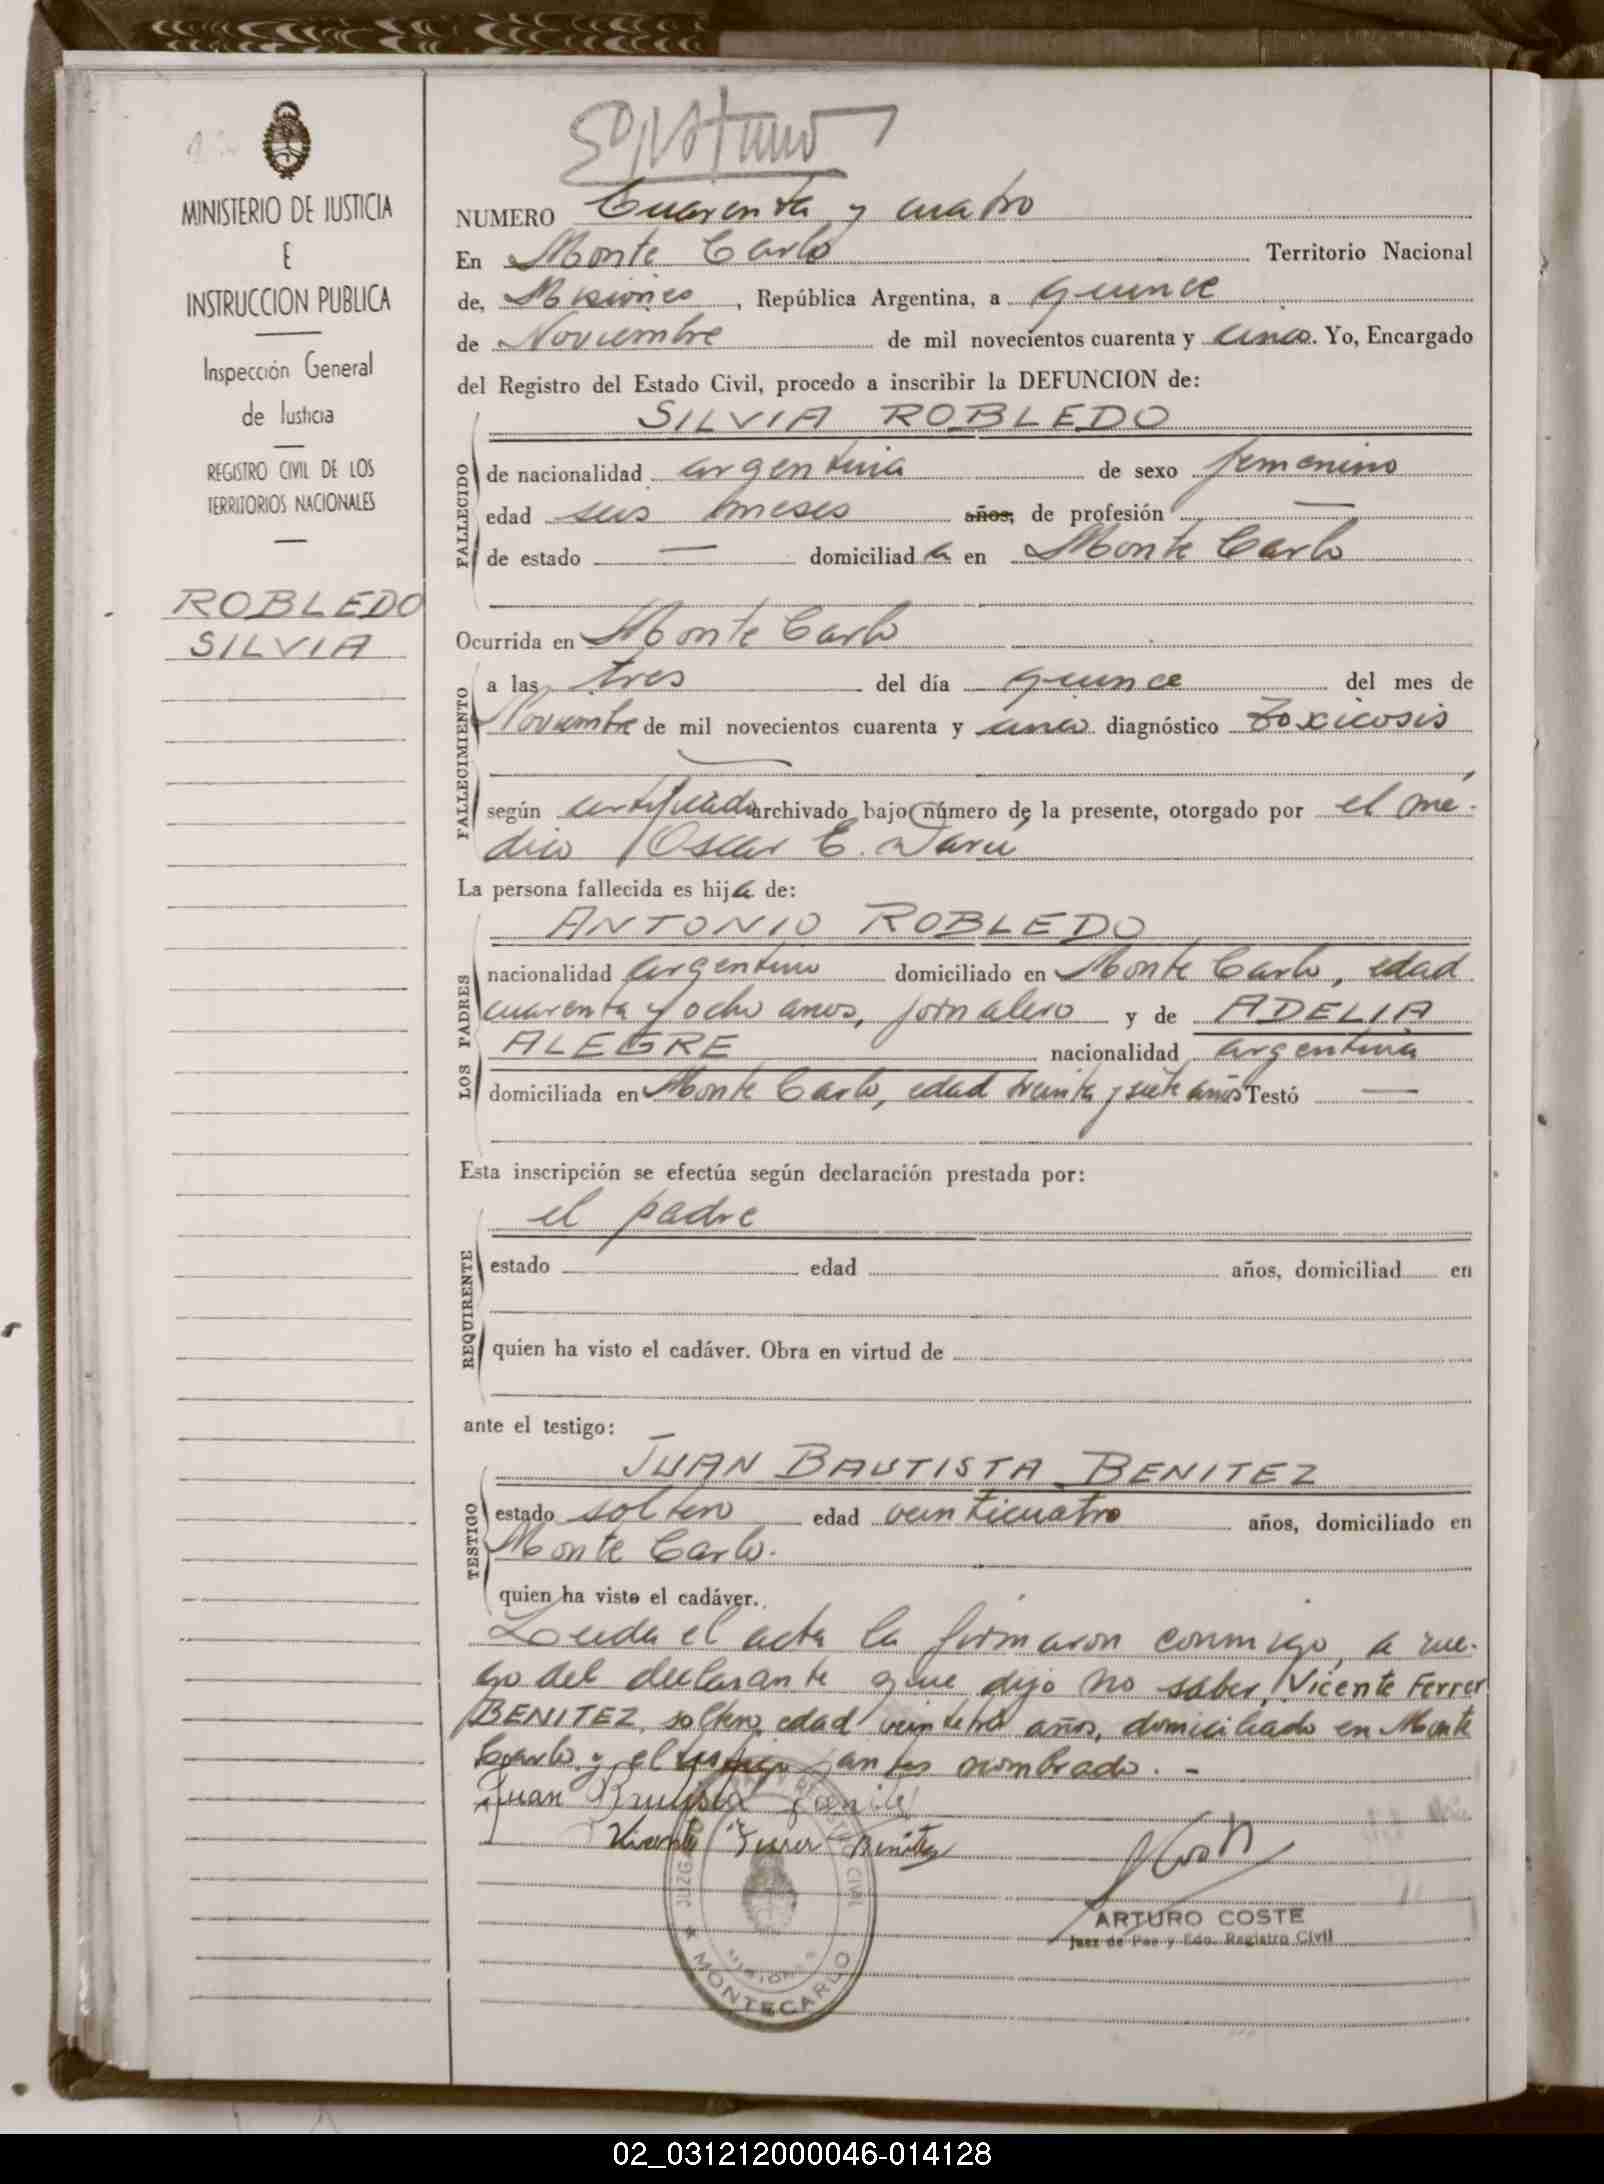 MINISTERIO DE JUSTICIA
E
INSTRUCCION PUBLICA
Inspección General
de Justicia
REGISTRO CIVIL DE LOS
TERRITORIOS NACIONALES
ROBLEDO
SILVIA
NUMERO Cuarenta y cuatro
En Monte Carlo Territorio Nacional
de, Misiones, República Argentina, a quince
de Noviembre de mil novecientos cuarenta y cinco. Yo, Encargado
del Registro del Estado Civil, procedo a inscribir la DEFUNCION de:
SILVIA ROBLEDO
FALLECIDO
de nacionalidad argentina de sexo femenino
edad seis meses años, de profesión —
de estado — domiciliada en Monte Carlo
Ocurrida en Monte Carlo
FALLECIMIENTO
a las tres del día quince del mes de
Noviembre de mil novecientos cuarenta y cinco diagnóstico Toxicosis
según certificado archivado bajo número de la presente, otorgado por el mé-
dico Oscar E. Darú
La persona fallecida es hija de:
LOS PADRES
ANTONIO ROBLEDO
nacionalidad argentino domiciliado en Monte Carlo, edad
cuarenta y ocho anos, jornalero y de ADELIA
ALEGRE nacionalidad argentina
domiciliada en Monte Carlo, edad treinta y siete años Testó —
Esta inscripción se efectúa según declaración prestada por:
REQUIRENTE
el padre
estado edad años, domiciliad en
quien ha visto el cadáver. Obra en virtud de
ante el testigo:
TESTIGO
JUAN BAUTISTA BENITEZ
estado soltero edad veinticuatro años, domiciliado en
Monte Carlo.
quien ha visto el cadáver.
Leida el acta la firmaron conmigo, a rue-
go del declarante que dijo no saber, Vicente Ferrer
BENITEZ, soltero, edad años, domiciliado en Monte
Carlo y el testigo antes nombrado. -
Juan Bautista
Vicente Ferrer Benitez
JUZGADO CIVIL
MISIONES
MONTECARLO
ARTURO COSTE
Juez de Paz y Edo. Registro Civil
02_031212000046-014128